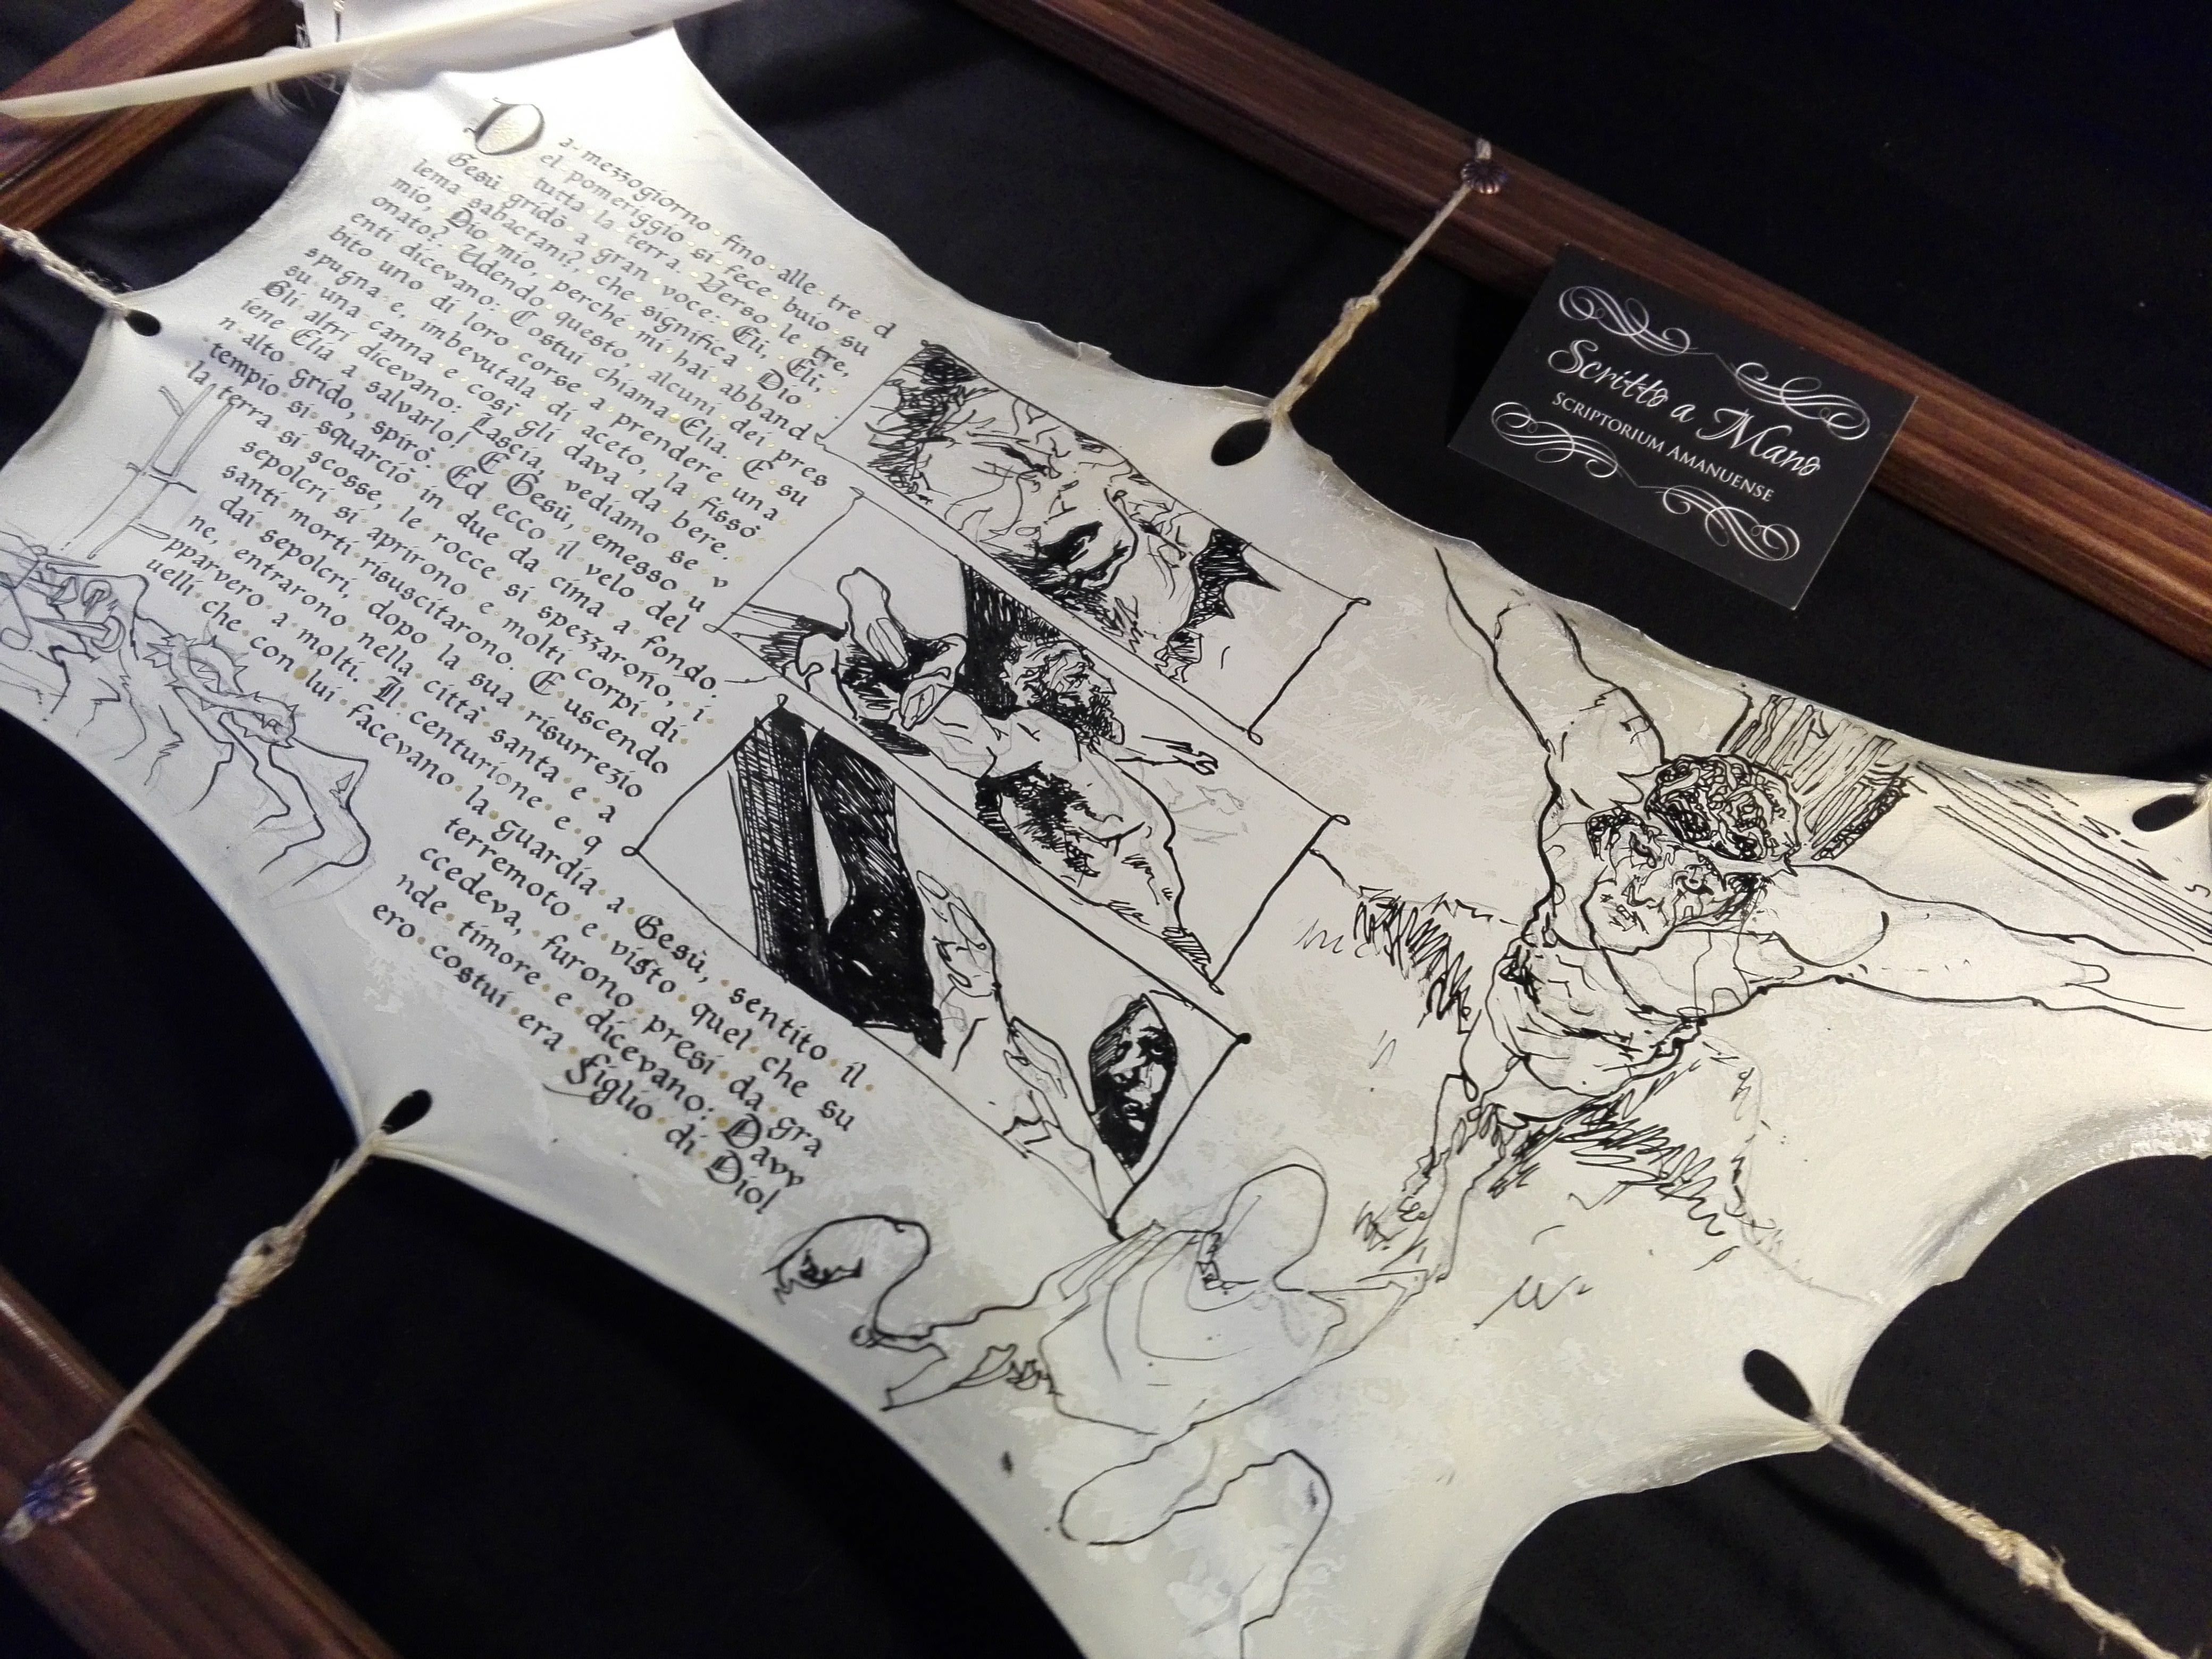 Da·mezzogiorno·fino·alle·tre·d
el·pomeriggio·si·fece·buio·su
tutta·la·terra.·Verso·le·tre,
Gesù·gridò·a·gran·voce:·Elì,·Elì,
lema·sabactani?,·che·significa·Dio
mio,·Dio·mio,·perché·mi·hai·abband
onato?·Udendo·questo,·alcuni·dei·pres
enti·dicevano:·Costui·chiama·Elia.·E·su
bito·uno·di·loro·corse·a·prendere·una
spugna·e,·imbevutala·di·aceto,·la·fissò
su·una·canna·e·così·gli·dava·da·bere.
Gli·altri·dicevano:·Lascia,·vediamo·se·v
iene·Elia·a·salvarlo!·E·Gesù,·emesso·u
n·alto·grido,·spirò.·Ed·ecco·il·velo·del
tempio·si·squarciò·in·due·da·cima·a·fondo.
la·terra·si·scosse,·le·rocce·si·spezzarono,·i
sepolcri·si·aprirono·e·molti·corpi·di
santi·morti·risuscitarono.·E·uscendo
dai·sepolcri,·dopo·la·sua·risurrezio
ne,·entrarono·nella·città·santa·e·a
pparvero·a·molti.·Il·centurione·e·q
uelli·che·con·lui·facevano·la·guardia·a·Gesù,·sentito·il
terremoto·e·visto·quel·che·su
ccedeva,·furono·presi·da·gra
nde·timore·e·dicevano:·Davv
ero·costui·era·figlio·di·Dio!
Scritto a Mano
SCRIPTORIUM AMANUENSE